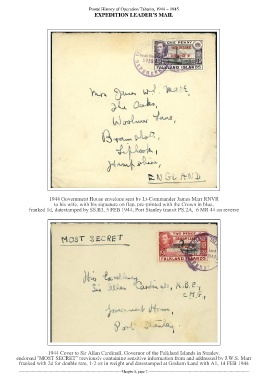 Postal History of Operation Tabarin, 1944 – 1945
EXPEDITION LEADER'S MAIL
ONE PENNY
FALKLAND ISLANDS
Mrs James W.S. Marr,
The Oaks,
Woolmer Lane,
Bramshott,
Liphook,
Hampshire,
ENGLAND
1944 Government House envelope sent by Lt-Commander James Marr RNVR
to his wife, with his signature on flap, pre-printed with the Crown in blue,
franked 1d, datestamped by SS.B1, 5 FEB 1944, Port Stanley transit PS.2A, 6 MR 44 on reverse
MOST SECRET
FALKLAND ISLANDS
His Excellency
Sir Allan Cardinall, K.B.E,
C.M.G,
Government House,
Port Stanley.
1944 Cover to Sir Allan Cardinall, Governor of the Falkland Islands in Stanley,
endorsed "MOST SECRET" previously containing sensitive information from and addressed by J.W.S. Marr
franked with 2d for double rate, 1-2 oz in weight and datestamped at Graham Land with A1, 14 FEB 1944